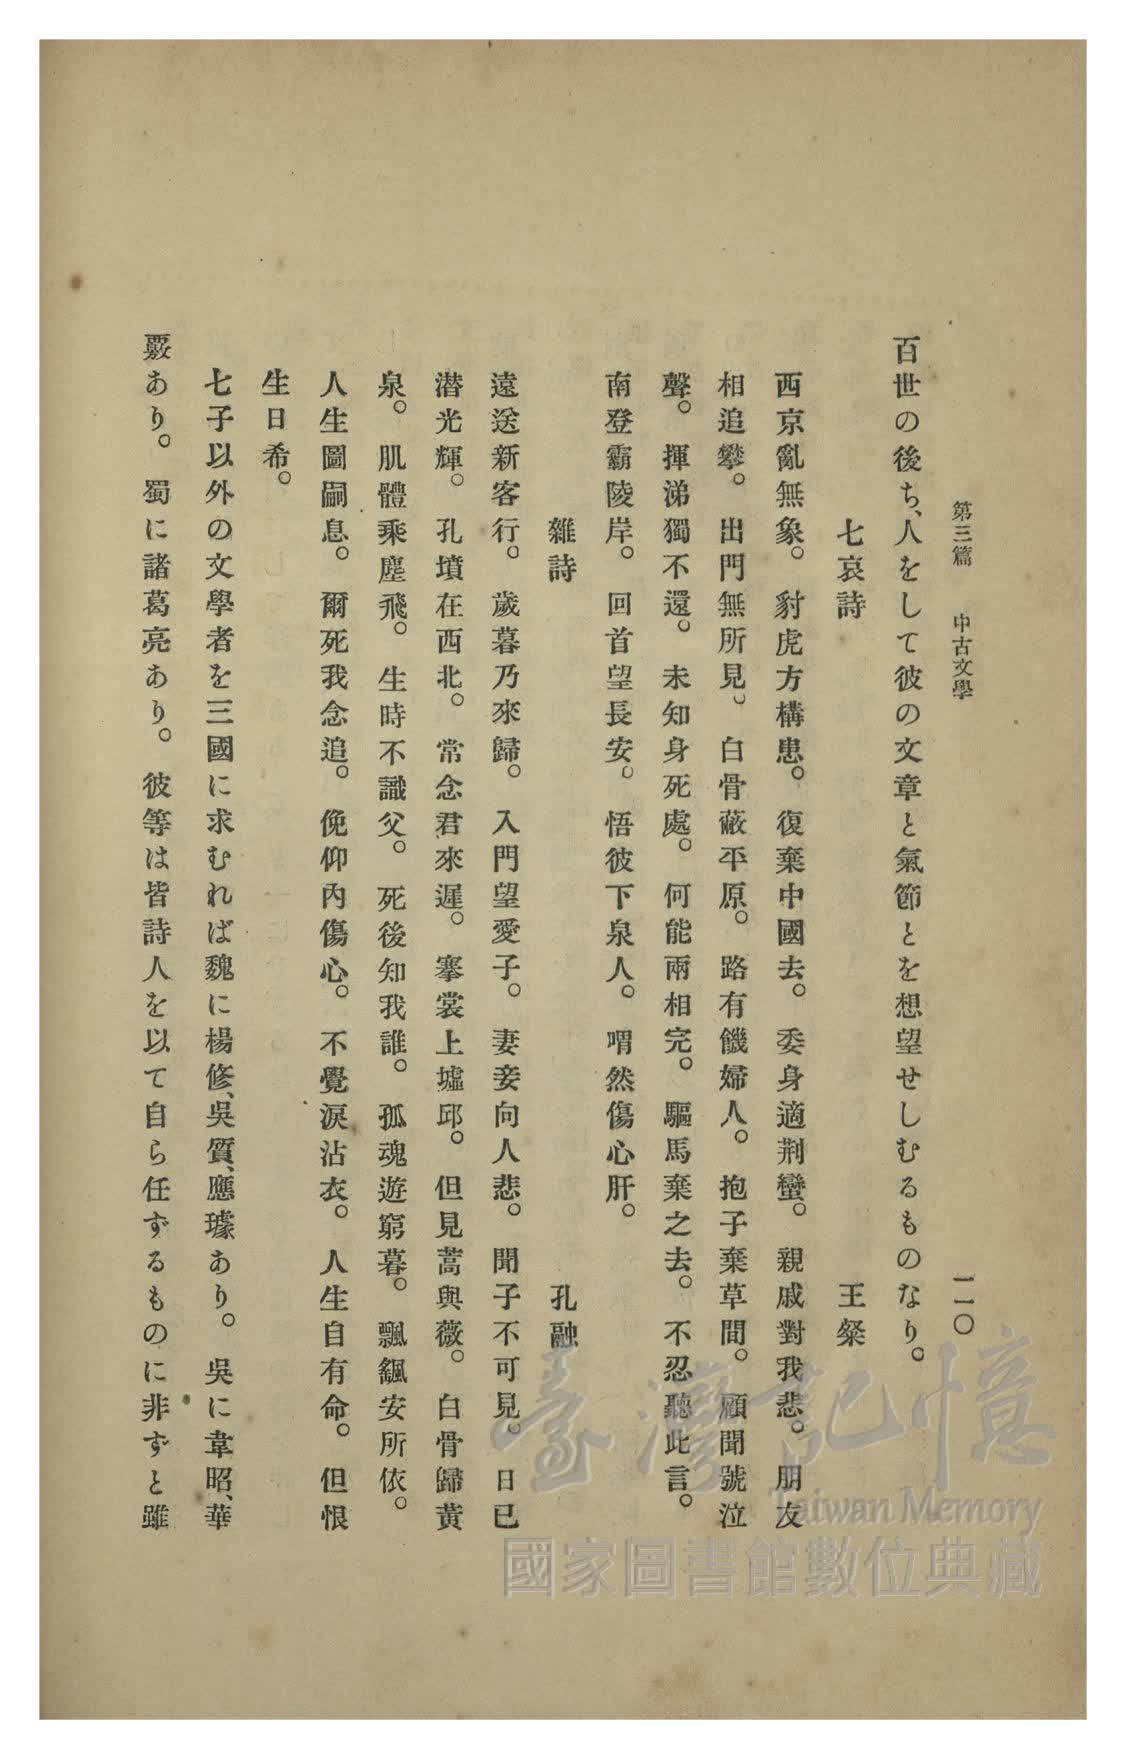 第三篇 中古文學
一一〇
百世の後ち、人をして彼の文章と氣節とを想望せしむるものなり。
七哀詩 王粲
西京亂無象。豺虎方構患。復棄中國去。委身適荆蠻。親戚對我悲。朋友
相追攀。出門無所見。白骨蔽平原。路有饑婦人。抱子棄草間。顧聞號泣
聲。揮涕獨不還。未知身死處。何能兩相完。驅馬棄之去。不忍聽此言。
南登霸陵岸。回首望長安。悟彼下泉人。喟然傷心肝。
雜詩 孔融
遠送新客行。歲暮乃來歸。入門望愛子。妻妾向人悲。聞子不可見。日已
潜光輝。孔墳在西北。常念君來遲。搴裳上墟邱。但見蒿與薇。白骨歸黃
泉。肌體乘塵飛。生時不識父。死後知我誰。孤魂遊窮暮。飄颻安所依。
人生圖嗣息。爾死我念追。俛仰內傷心。不覺淚沾衣。人生自有命。但恨
生日希。
七子以外の文學者を三國に求むれば魏に楊修、吳質、應璩あり。吳に韋昭、華
覈あり。蜀に諸葛亮あり。彼等は皆詩人を以て自ら任ずるものに非ずと雖
臺灣記憶
Taiwan Memory
國家圖書館數位典藏